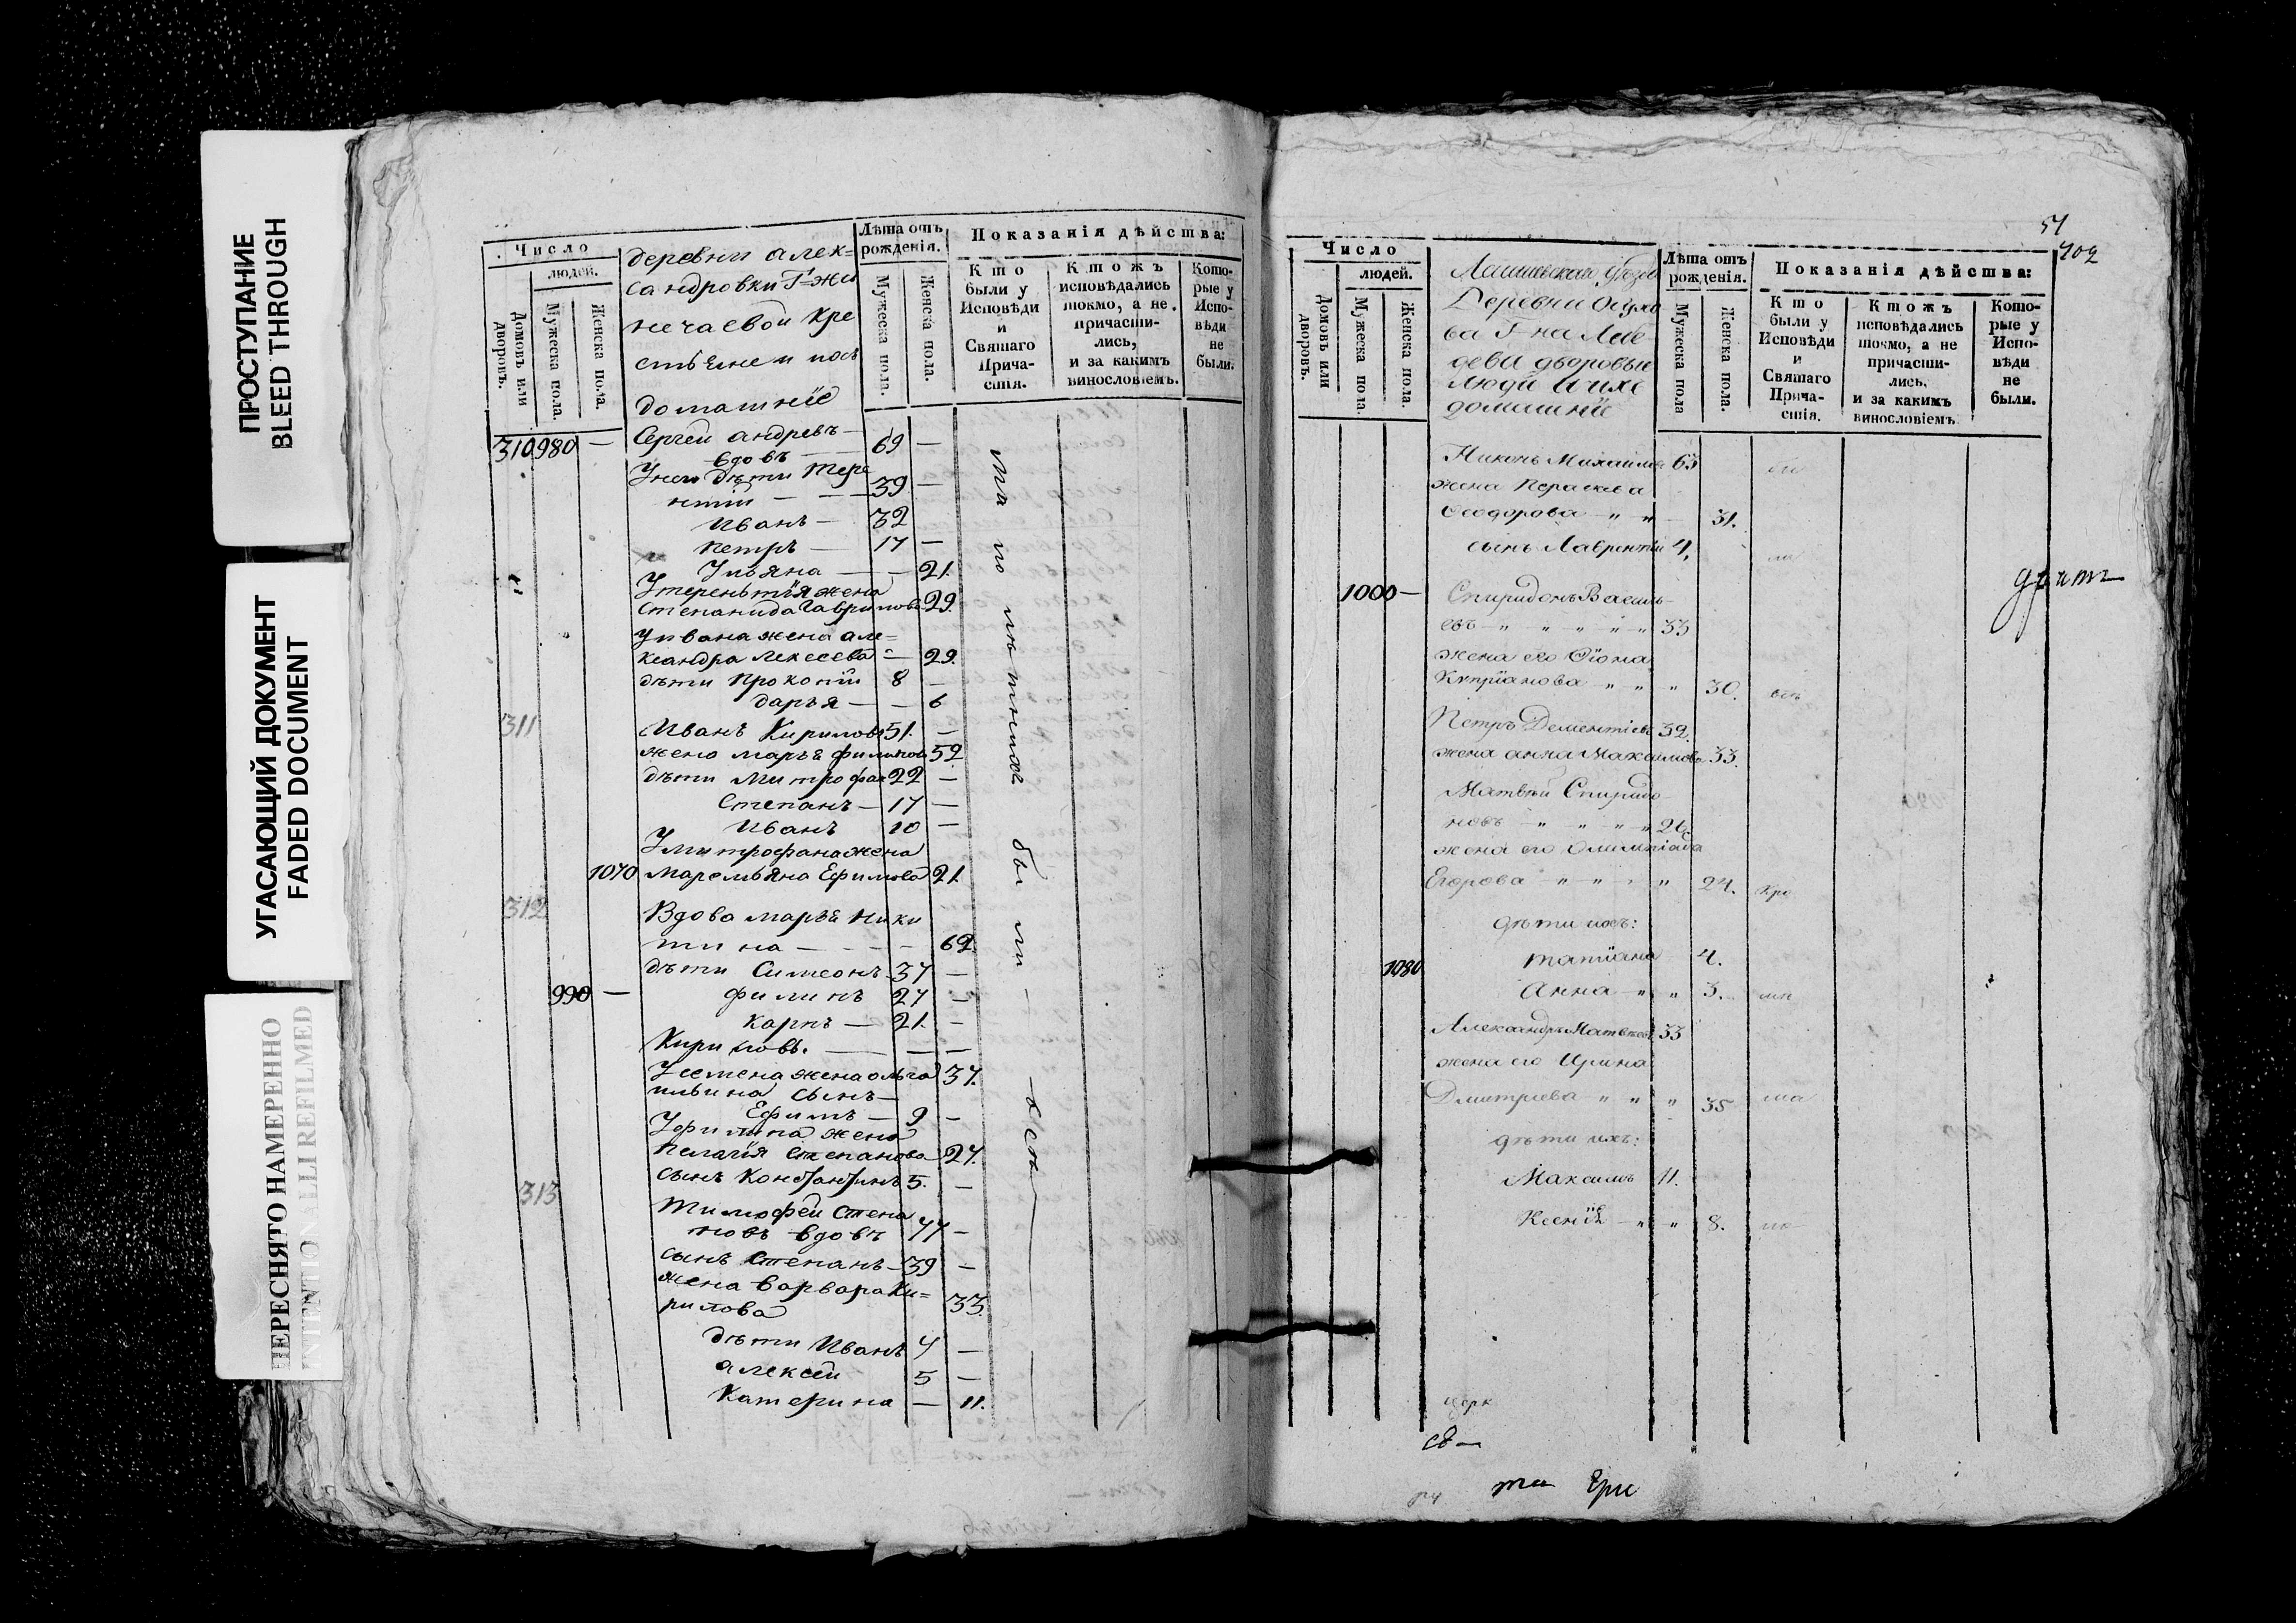 ПРОСТУПАНИЕ
BLEED THROUGH
УГАСАЮЩИЙ ДОКУМЕНТ
FADED DOCUMENT
ПЕРЕСНЯТО НАМЕРЕННО
INTENTIONALLI REFILMED
Число
людей.
Домовъ или дворовъ.
Мужеска пола.
Женска пола.
деревни алек=
сандровки Г=жи
нечаевой кре
стьяне и ихъ
домашніе
Лѣта отъ рожденія.
Мужеска пола.
Женска пола.
Показанія дѣйства:
Кто были у Исповѣди и Святаго Прича-стія.
Ктожъ исповѣдались токмо, а не причасти-лись, и за какимъ винословіемъ.
Кото-рые у Испо-вѣди не были.
310 980 — Сергей андревъ —
вдовъ — 69 —
У него дѣти Тере
нтій — — 39 —
Иванъ — 32
Петръ — 17 —
Ульяна — — 21.
У терентія жена
Степанида Гаврилова 29.
У ивана жена але=
ксандра алексеева — 29.
дѣти Прокопій 8 —
дарья — — 6
311 Иванъ Кириловъ 51. —
жена марья филипова 52.
дѣти Митрофан 22 —
Степанъ — 17 —
Иванъ 10 —
У митрофана жена
1070 маремьяна Ефимова 21.
312 Вдова марья Ники
тина — — — 62.
дѣти Симеонъ 37 —
990 — филипъ 27 —
карпъ — 21. —
Кириловъ. — — —
У семена жена ольга 37.
ильина сынъ —
Ефимъ — 9 —
У филипа жена
пелагія степанова 27.
сынъ Константинъ 5. —
313 Тимофей Степа
новъ вдовъ 77 —
сынъ Степанъ — 39 —
жена варвара Ки=
рилова 33.
дѣти Иванъ 7 —
алексей 5 —
Катерина — 11.
были —
всѣ
51
702
Число
людей.
Домовъ или дворовъ.
Мужеска пола.
Женска пола.
Деревни
дворовые
люди и ихъ
домашніе
Лѣта отъ рожденія.
Мужеска пола
Женска пола.
Показанія дѣйства:
Кто были у Исповѣди и Святаго Прича-стія.
Ктожъ исповѣдались токмо, а не причасти-лись, и за какимъ винословіемъ
Кото-рые у Испо-вѣди не были.
Никонъ Михайловъ 63
жена Параскева
Ѳеодорова — " " — 31.
сынъ Лаврентій 4.
1000 — Спиридонъ Василь-
евъ — " " " " 33
жена его
Купріанова " " " 30.
Петръ Дементіевъ 32.
жена анна Максимова 33.
Матвѣй Спиридо-
новъ — " " " " 26
жена его Олимпіада
Егорова " " " " 24.
дѣти ихъ:
1080 татіана 4.
Анна — " " 3.
Александръ Матвеевъ 33
жена его Ирина
Дмитріева " " " 35
дѣти ихъ:
Максимъ 11.
Ксенія — " " 8.